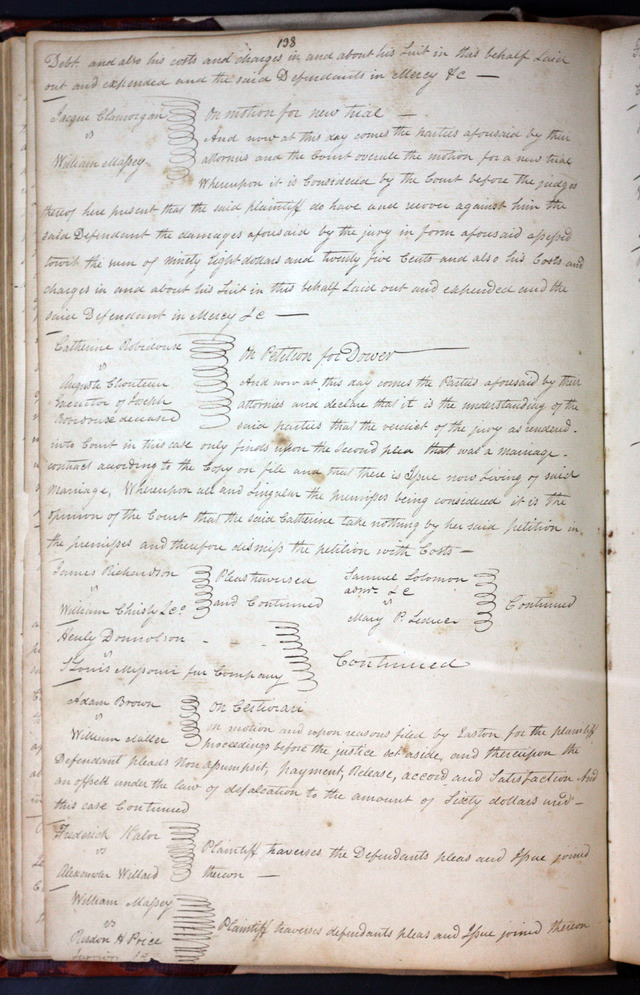 138
Debt. and also his costs and charges in and about his Suit in that behalf Laid
out and expended and the said Defendants in Mercy &c —
Jacque Clamorgan
vs
William Massey
On motion for new trial —
And now at this day comes the parties aforesaid by their
attornies and the Court overule the motion for a new trial
Whereupon it is Considered by the Court before the judges
thereof here present that the said plaintiff do have and recover against him the
said Defendant the damages aforesaid by the jury in form aforesaid assessed
towit the sum of Ninety Eight dollars and twenty five Cents and also his Costs and
charges in and about his Suit in this behalf Laid out and expended and the
said Defendant in Mercy &c —
Catherine Robidoux
vs
Auguste Chouteau
Executor of Joseph
Robidoux deceased
On Petition for Dower
And now at this day comes the Parties aforesaid by their
attornies and declare that it is the understanding of the
said parties that the verdict of the jury as rendered
into Court in this case only finds upon the Second plea that was a marriage
contract according to the Copy on file and that there is Issue now Living of said
Marriage, Whereupon all and Singular the premises being considered it is the
opinion of the Court that the said Catherine take nothing by her said petition in
the premises and therefore dismiss the petition with Costs —
James Richardson
vs
William Christy &Co
Pleas traversed
and Continued
Samuel Solomon
admr. &c
vs
Mary P. Leduc
Continued
Henly Donnolson
vs
St Louis Missouri fur Company
Continued
Adam Brown
vs
William Miller
On Certiorari
on motion and upon reasons filed by Easton for the plaintiff
proceedings before the justice set aside, and thereupon the
Defendant pleads Non assumpsit, payment, Release, accord and Satisfaction And
an offsett under the law of defalcation to the amount of Sixty dollars and
this case Continued
Frederick
vs
Alexander Willard
Plaintiff traverses the Defendants pleas and Issue joined
thereon —
William Massey
vs
Risdon H Price
Plaintiff traverses defendants pleas and Issue joined thereon